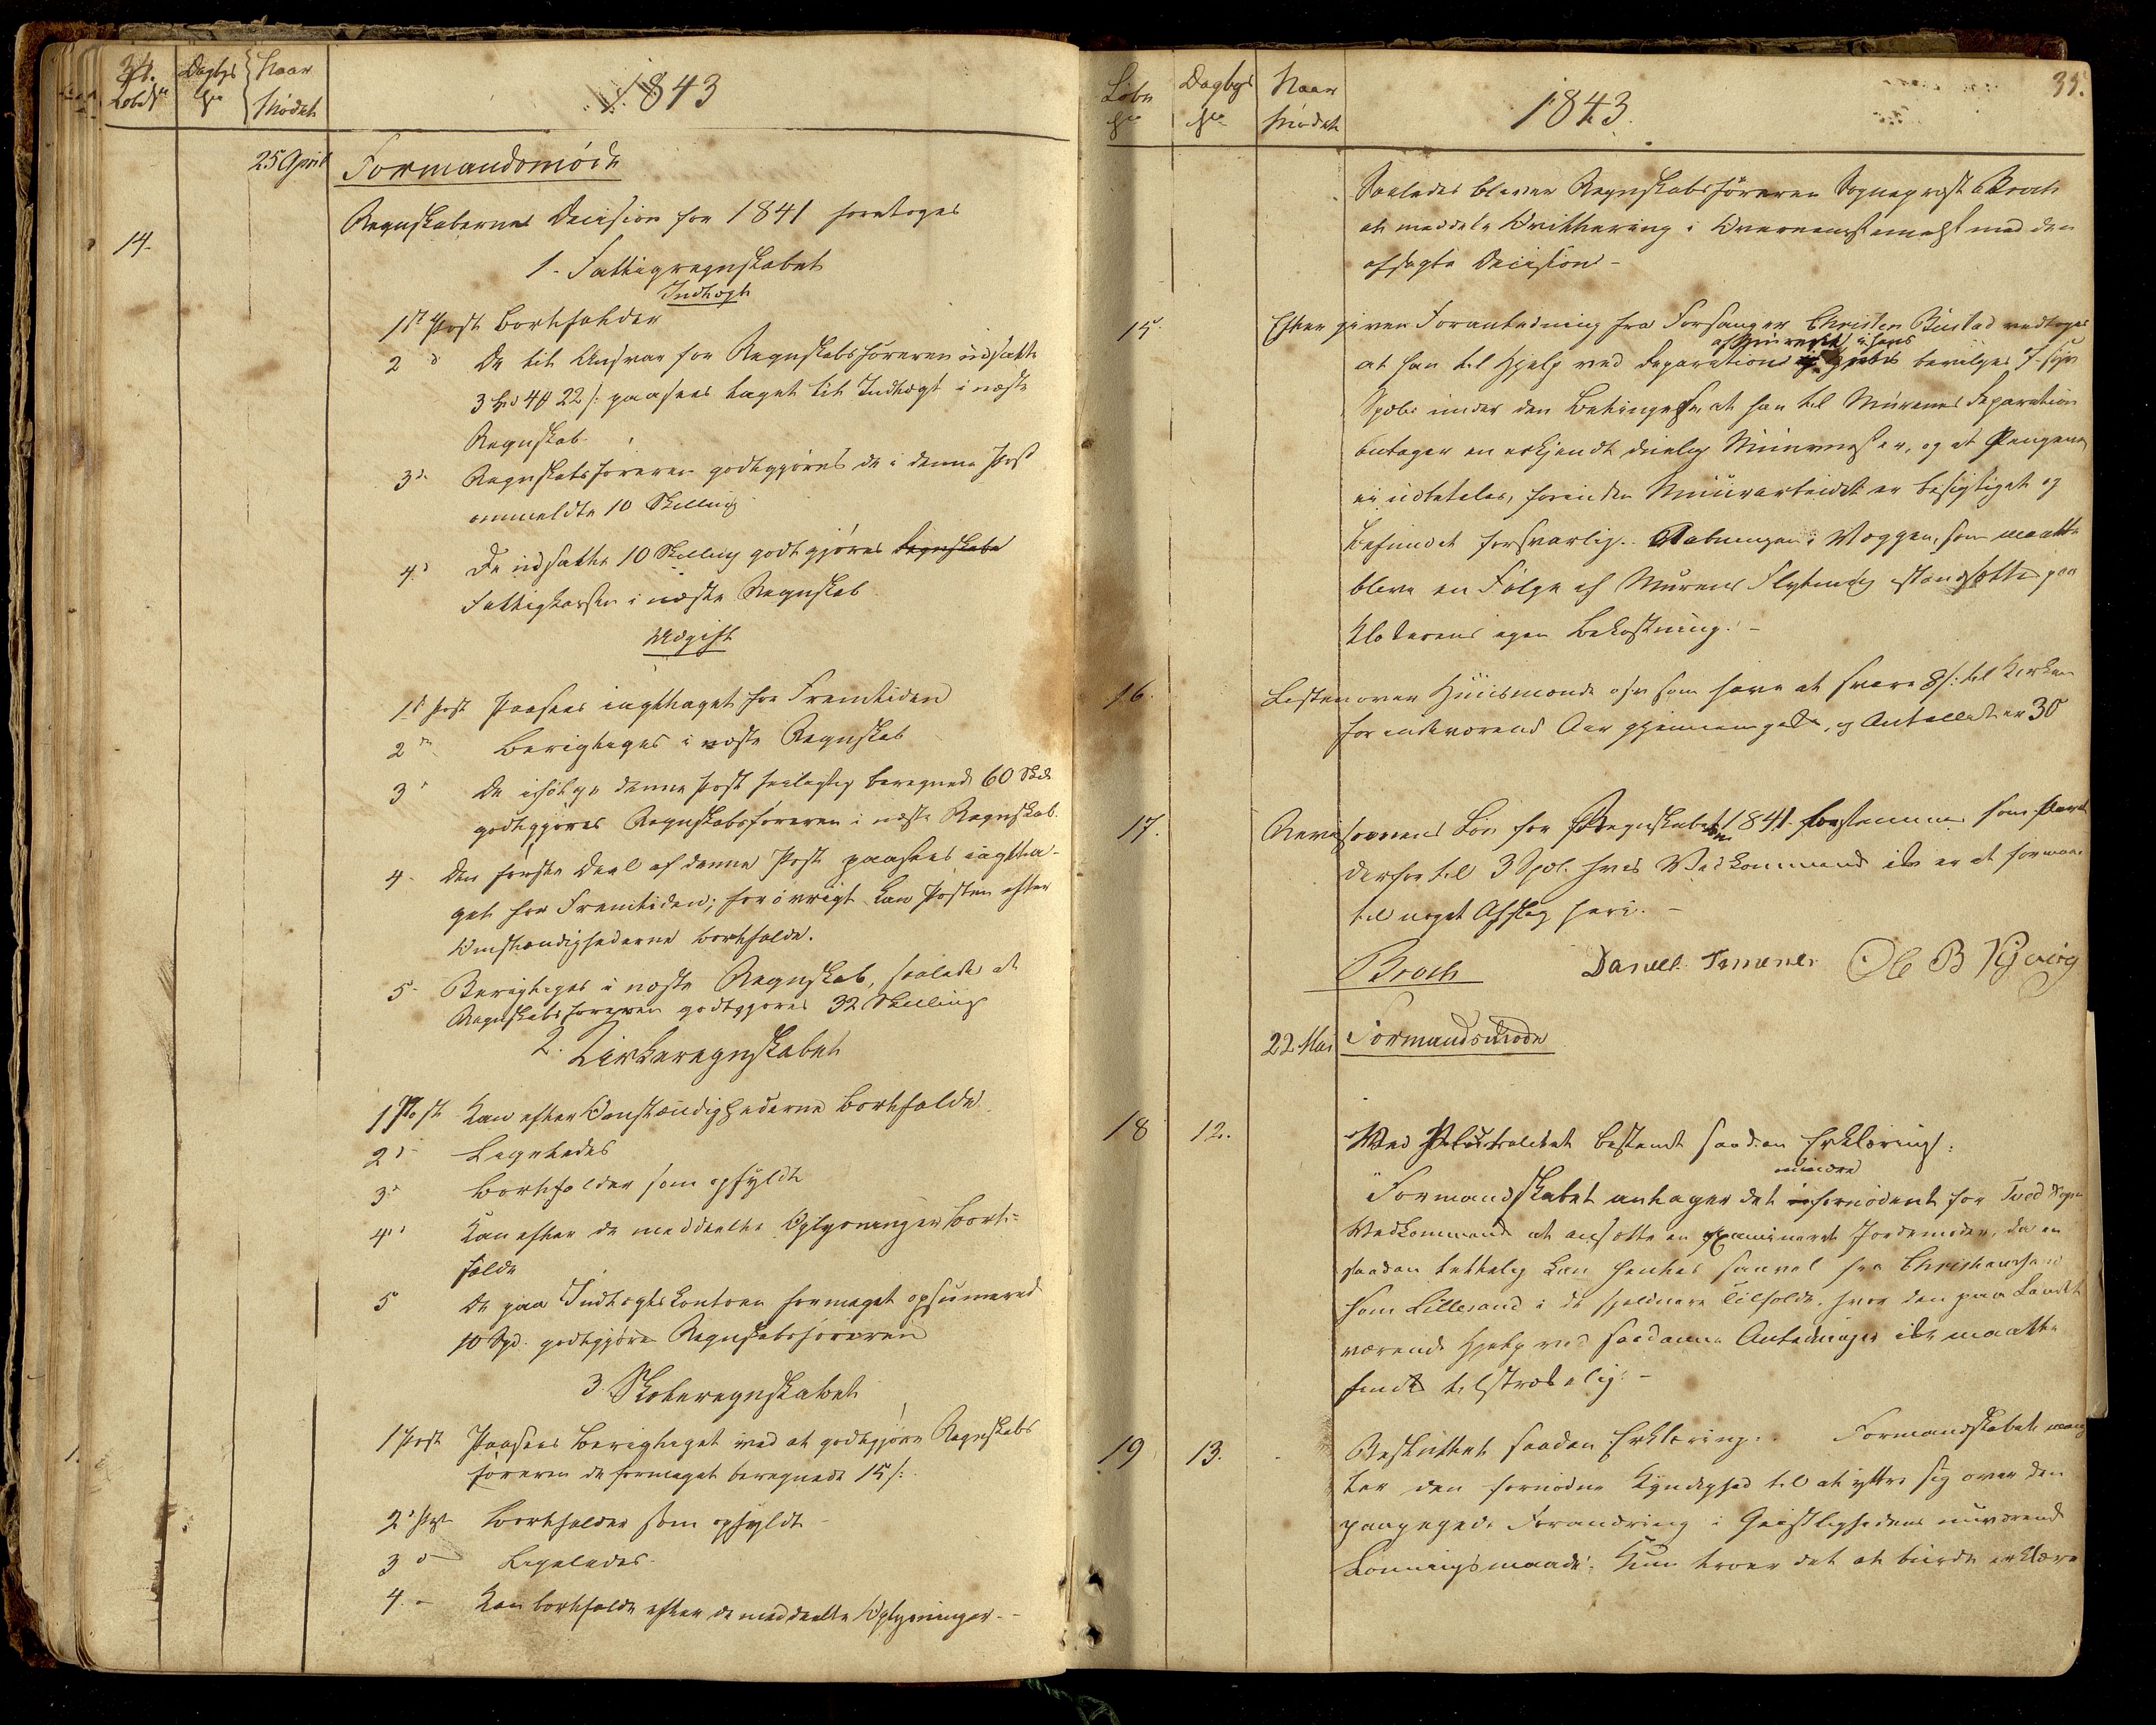 34.
LøbeNr
Dagbgs
Nr
Naar
Mødet
1843
25 April
Formandsmöde
14.
Regnskabernes Decision for 1841 foretoges
1. Fattigregnskabet
Indtægt
1ste Post bortfalder
2 d De til Ansvar for Regnskabsföreren udsatte
22 s: paasees taget til Indtægt i næste
Regnskab.
3 d Regnskabsföreren godtgjöres de i denne Post
ommeldte 10 Skilling
4 d De udsatte 10 Skilling godtgjöres Regnskabs
Fattigkassen i næste Regnskab
Udgift
1ste Post Paasees iagttaget for Fremtiden
2 Berigtiges i næste Regnskab
3 De ifölge denne Post feilagtig beregnede 60 Skil
godtgjöres Regnskabsföreren i næste Regnskab.
4 Den förste Deel af denne Post paasees iagtta-
get for Fremtiden; forövrigt kan Posten efter
Omstændighederne bortfalde.
5 Berigtiges i næste Regnskab, saaledes at
Regnskabsföreren godtgjöres 32 Skilling
2. Kirkeregnskabet
1 Post Kan efter Omstændighederne bortfalde
2 d Ligeledes
3 d Bortfalder som opfyldt
4 d Kan efter de meddeelte Oplysninger bort-
falde
5 De paa Indtægtskontoen formeget opsummerede
10 Spd. godtgjöres Regnskabsföreren
3. Skoleregnskabet
1 Post Paasees berigtiget ved at godtgjöre Regnskabs
föreren de formeget beregnede 15 s:
2 d Post Bortfalder som opfyldt
3 d Ligeledes
4 Kan bortfalde efter de meddeelte Oplysninger -
Löbe
Nr
Dagbgs
Nr
Naar
Mødet
1843.
35.
Saaledes bliver Regnskabsföreren Sogneprest Broch
at meddele Qvittering i Overeensstemmelse med den
afsagte Decision -
15. Efter given Foranledning fra Forsanger Christen Bustad vedtoges
af Murene i hans
at han til Hjelp ved Reparation bevilges 7 syv
Spdlr under den Betingelse at han til Murenes Reparation
antager en erkjendt duelig Muurmester, og at Pengene
ei udbetales, förinden Muurarbeidet er besigtiget og
befundet forsvarlig. Aabningen i Væggen, som maatte
blive en Fölge af Murens Flytning istandsættes paa
Klokerens egen Bekostning. -
16. Listen over Huusmænd osv som have at svare 8 s: til Kirken
for indeværende Aar gjennemgaaet, og Antallet er 30
17. Revisorens Lön for Regnskaberne 1841 bestemmes som
derfor til 3 Spd. hvis Vedkommende ikke er at formaae
til noget Afslag heri. -
Broch Daniel Ole B
22 Mai Formandsmöde
18 12. Ved bestemt saadan Erklæring:
mindre
"Formandskabet antager det fornödent for Tved Sogns
Vedkommende at ansætte en examineret Jordemoder, da en
saadan lettelig kan hentes saavel fra Christiansand
som Lillesand i de sjeldnere Tilfælde, hvor den paa Landet
værende Hjelp ved saadanne Anledninger ikke maatte
findes tilstrækkelig. -
19 13. Besluttet saadan Erklæring: Formandskabet mang
ler den fornödne Kyndighed til at yttre sig over den
paapegede Forandring i Geistlighedens nuværende
Lönningsmaade. Kun troer det at burde erklære